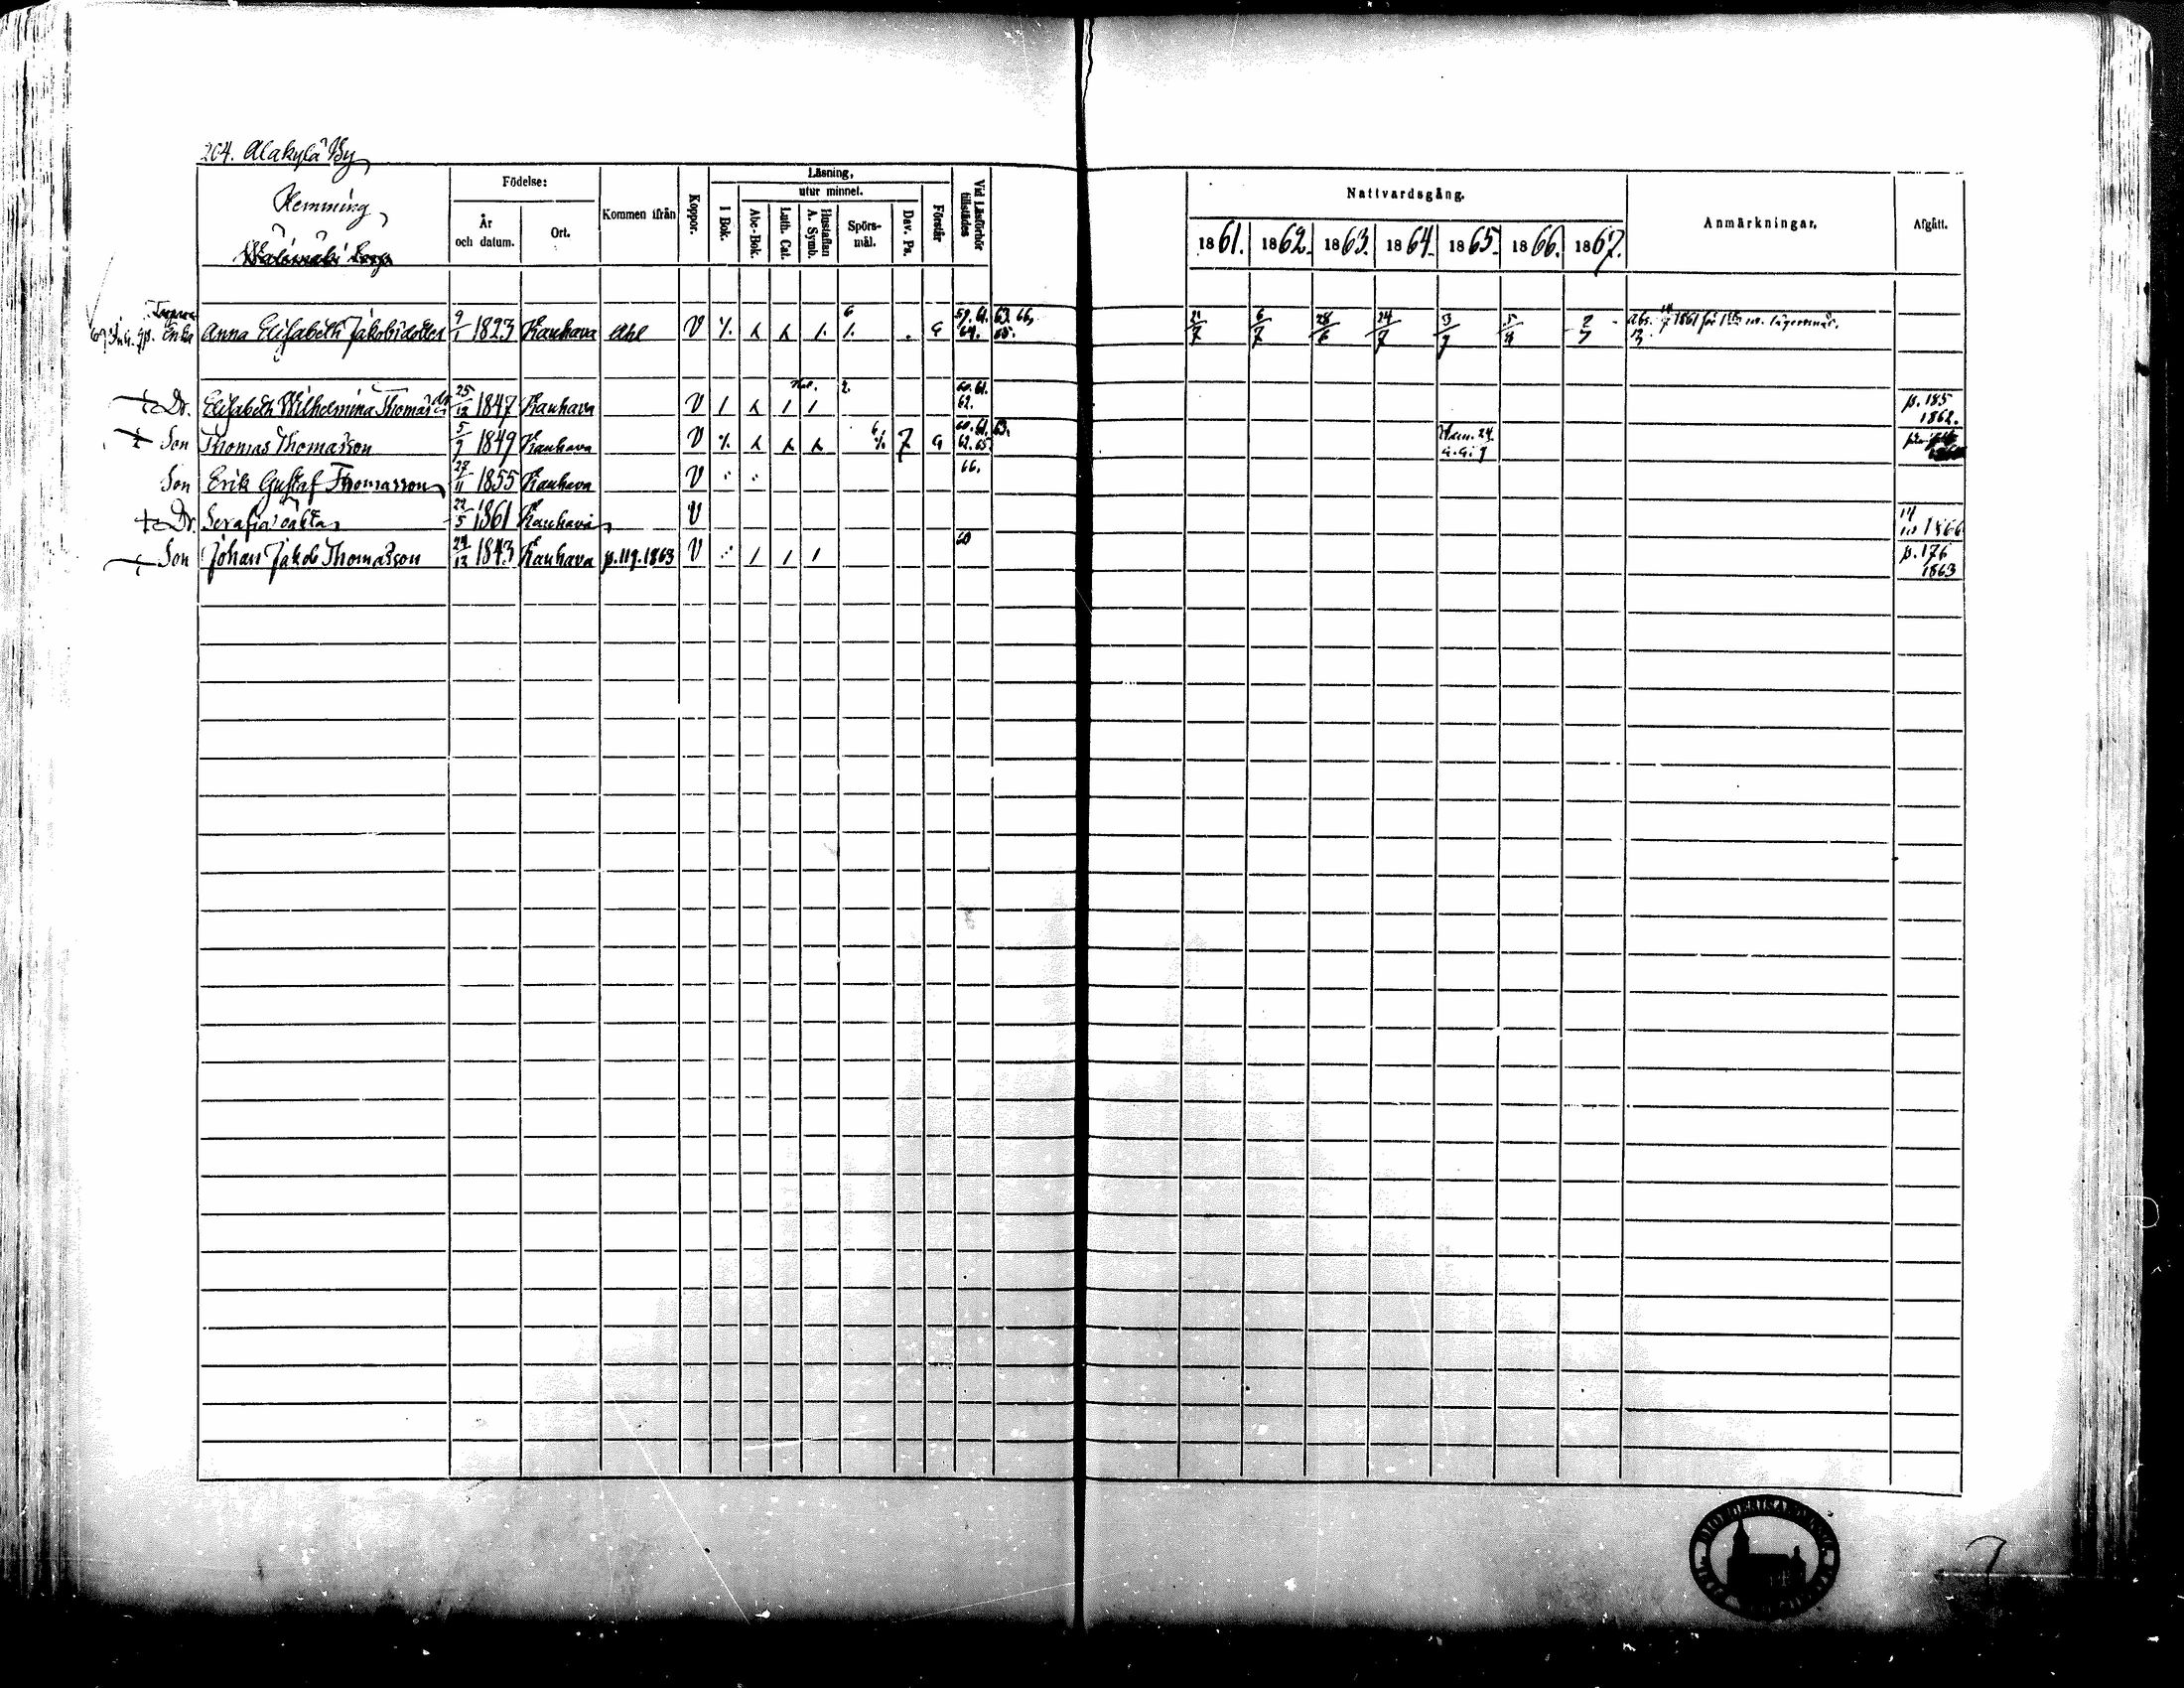 204. Alakylä By
Hemming
Födelse:
År och datum.
Ort.
Kommen ifrån
Koppor.
Läsning,
I Bok.
utur minnet.
Abc-Bok.
Luth. Cat.
Hustaflan A. Symb.
Spörsmål.
Dav. Ps.
Förstår
Vid Läsförhör tillstädes
Nattvardsgång.
1861. 1862. 1863. 1864. 1865. 1866. 1867.
Anmärkningar.
Afgått.
Enka Anna Elisabeth Jakobsdotter 9/1 1823 Kauhava Ahl V 6 G 59. 61. 63. 66, 64. 65. 21/7 6/7 28/6 24/7 2/7 1861 för
Dr. Elisabeth Wilhelmina Thomasdr 25/12 1847 Kauhava V 2. 60. 61. 62. p. 185 1862.
Son Thomas Thomasson 5/9 1849 Kauhava V 6. 7 G 60. 61. 63. 62. 65
Son Erik Gustaf Thomasson 27/11 1855 Kauhava V 66.
Dr. Serafia 22/5 1861 Kauhava V 1866
Son Johan Jakob Thomasson 24/12 1843 Kauhava p. 119. 1863 V 60 p. 176 1863